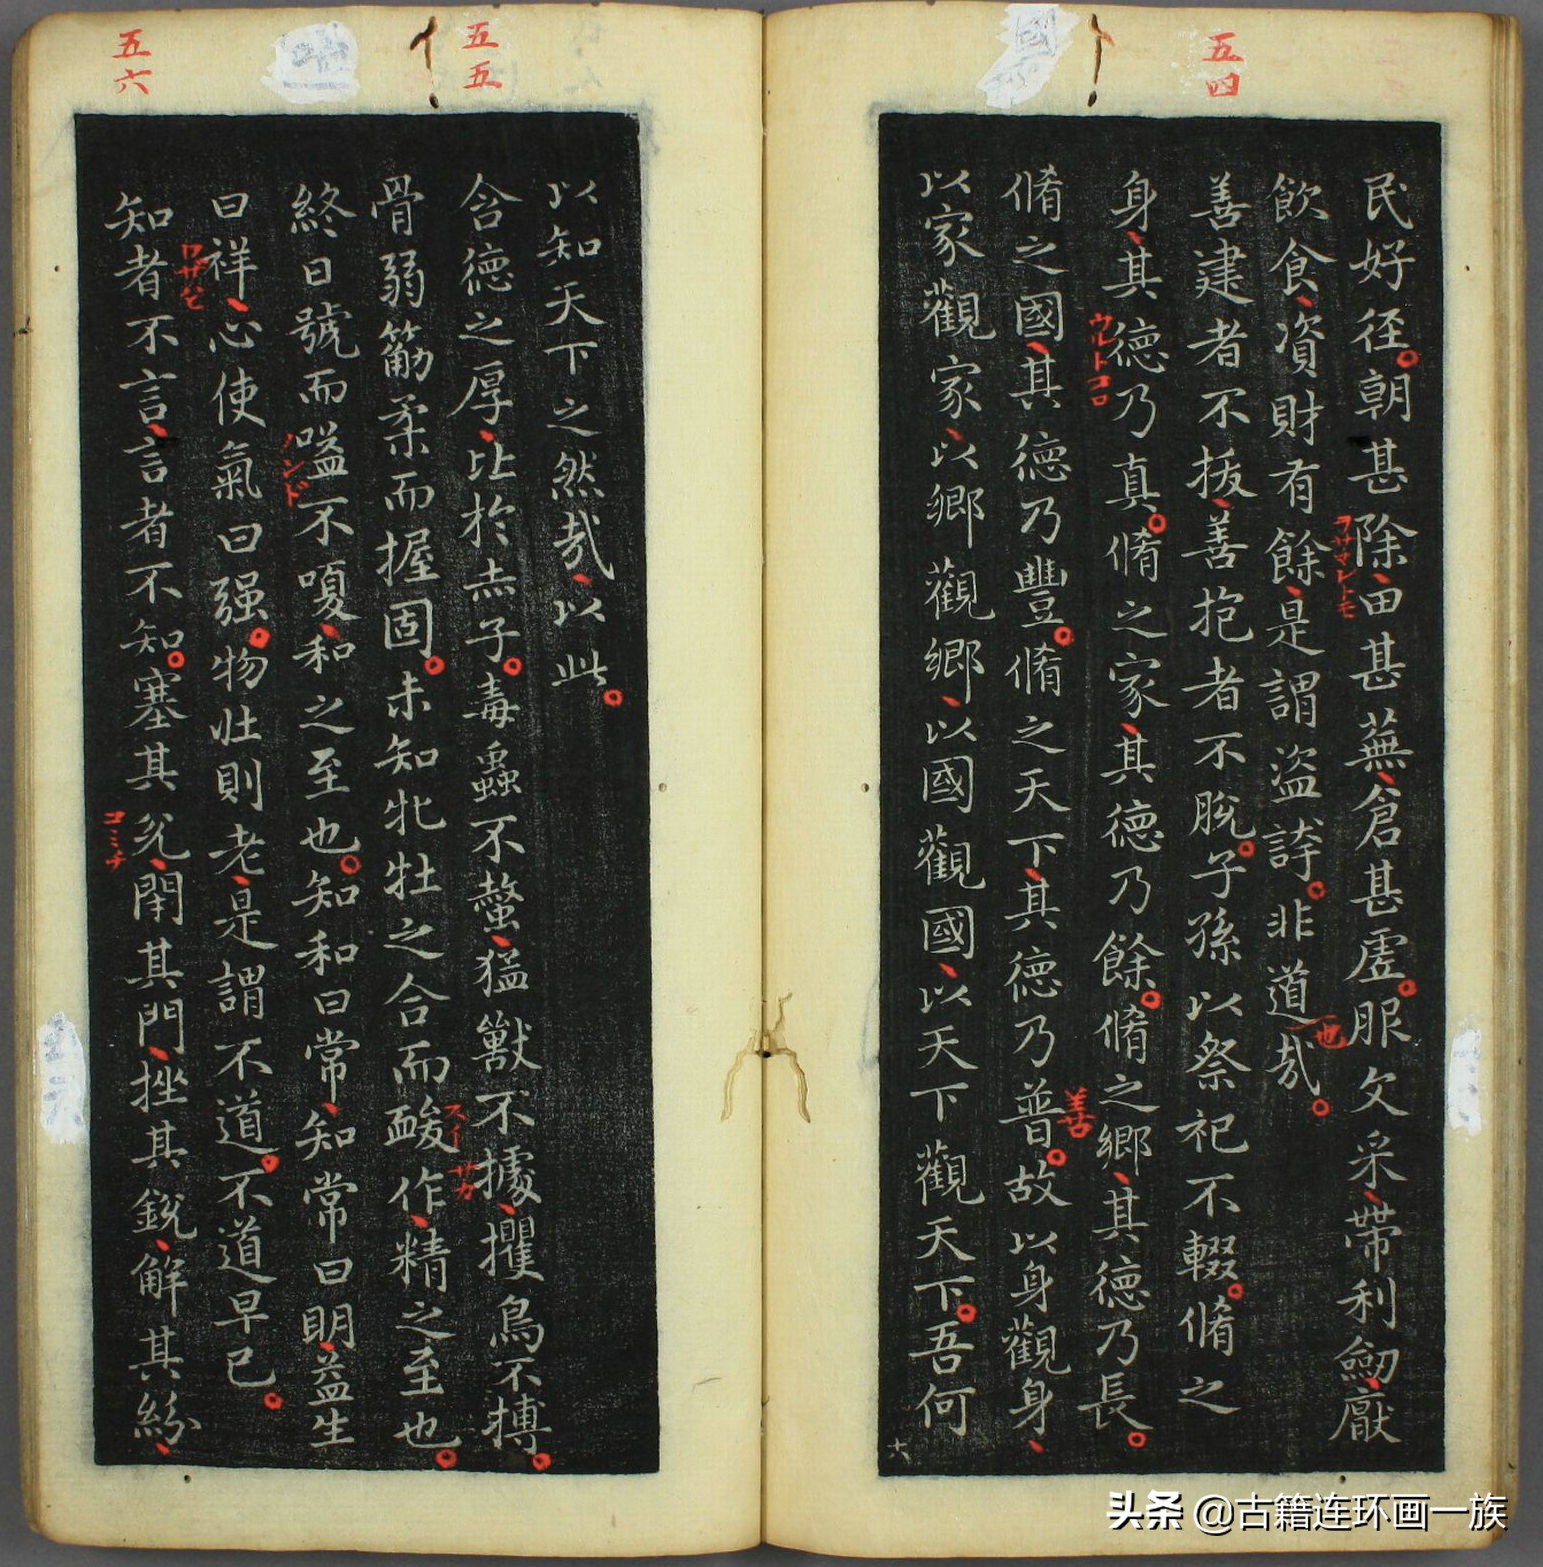 五四
民好径朝甚除田甚蕪倉甚虗服文采帶利劒厭
飲食資財有餘是謂盗誇非道也哉
善建者不拔善抱者不脫子孫以祭祀不輟脩之
身其德乃真脩之家其德乃餘脩之鄉其德乃長
脩之國其德乃豐脩之天下其德乃普故以身觀身
以家觀家以鄉觀鄉以國觀國以天下觀天下吾何
ヲサマレトモ
ウルトコロ
善
五五
以知天下之然哉以此
含德之厚比於赤子毒蟲不螫猛獸不據攫鳥不搏
骨弱筋柔而握固未知牝牡之合而酸作精之至也
終日號而嗌不嗄和之至也知和曰常知常曰明益生
曰祥心使氣曰强物壯則老是謂不道不道早已
五六
知者不言言者不知塞其兊閉其門挫其銳解其紛
ノンド
コミチ
头条 @古籍连环画一族